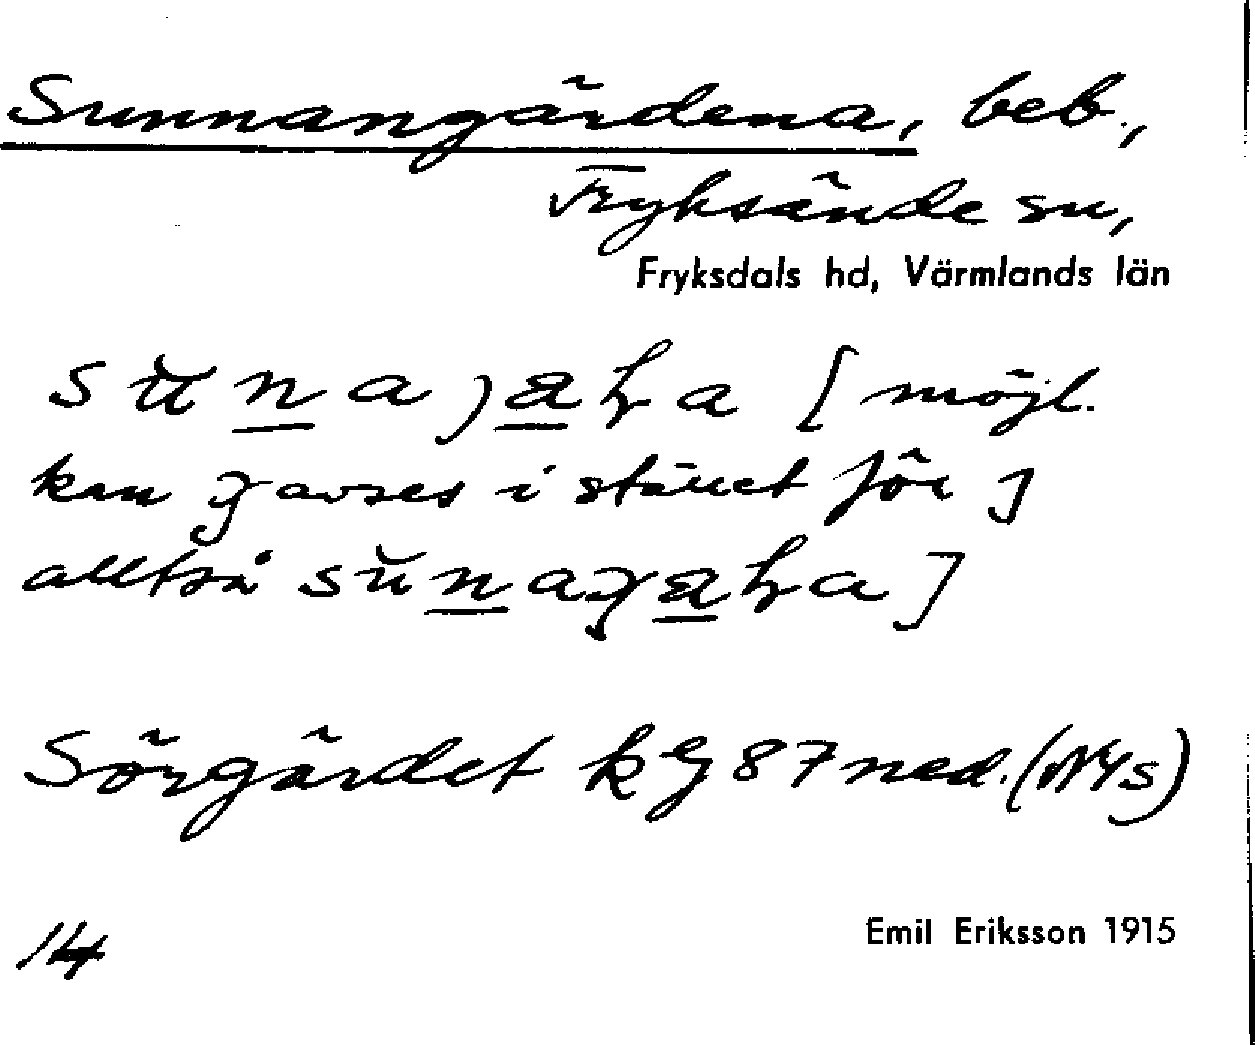 Sunnangärdena, beb.,
Fryksände sn,
Fryksdals hd, Värmlands län
[möjl.
kan avses i stället för
alltså
Sörgärdet 87 ned. (NYs)
14
Emil Eriksson 1915